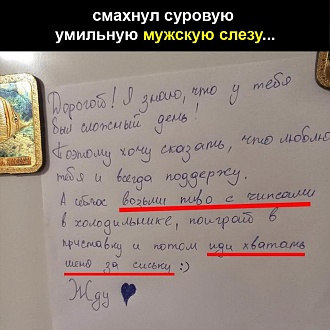 смахнул суровую
умильную мужскую слезу...
Дорогой! Я знаю, что у тебя
был сложный день!
Поэтому хочу сказать, что люблю
тебя и всегда поддержу.
А сейчас возьми пиво с чипсами
в холодильнике, поиграй в
приставку и потом иди хватать
меня за сиську :)
Жду